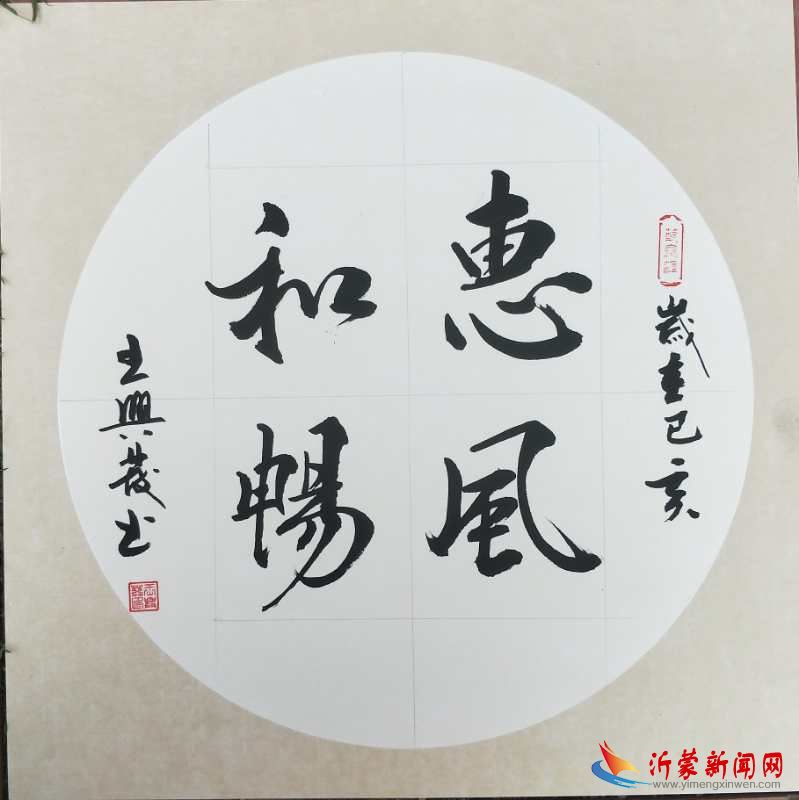 惠風
和暢
歲在己亥
王興茂书
沂蒙新闻网
www.yimengxinwen.com